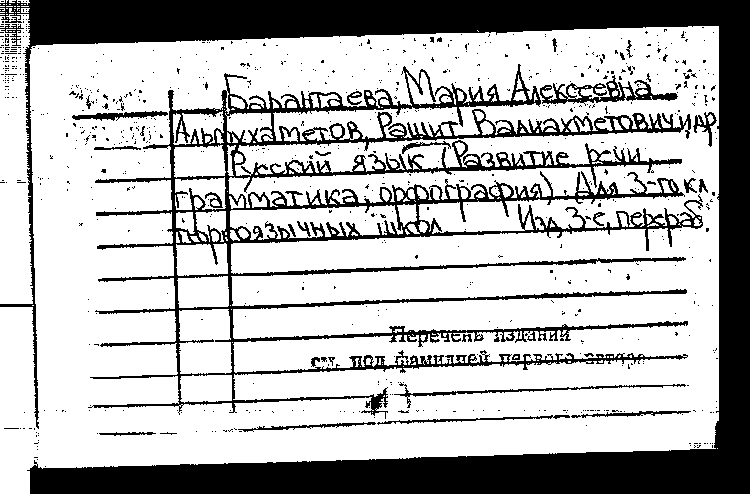 Барантаева, Мария Алексеевна
Альмухаметов, Рашит Валиахметович и др.
Русский язык (Развитие речи,
грамматика, орфография). Для 3-го кл.
тюркоязычных школ. Изд. 3-е, перераб.
Перечень изданий
см. под фамилией первого автора